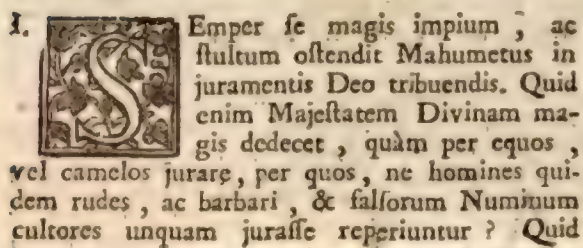 I. SEmper ſe magis impium, ac
ſtultum oſtendit Mahumetus in
juramentis Deo tribuendis. Quid
enim Majeſtatem Divinam ma-
gis dedecet, quàm per equos,
vel camelos jurare, per quos, ne homines qui-
dem rudes, ac barbari, & falſorum Numinum
cultores unquam juraſſe reperiuntur? Quid